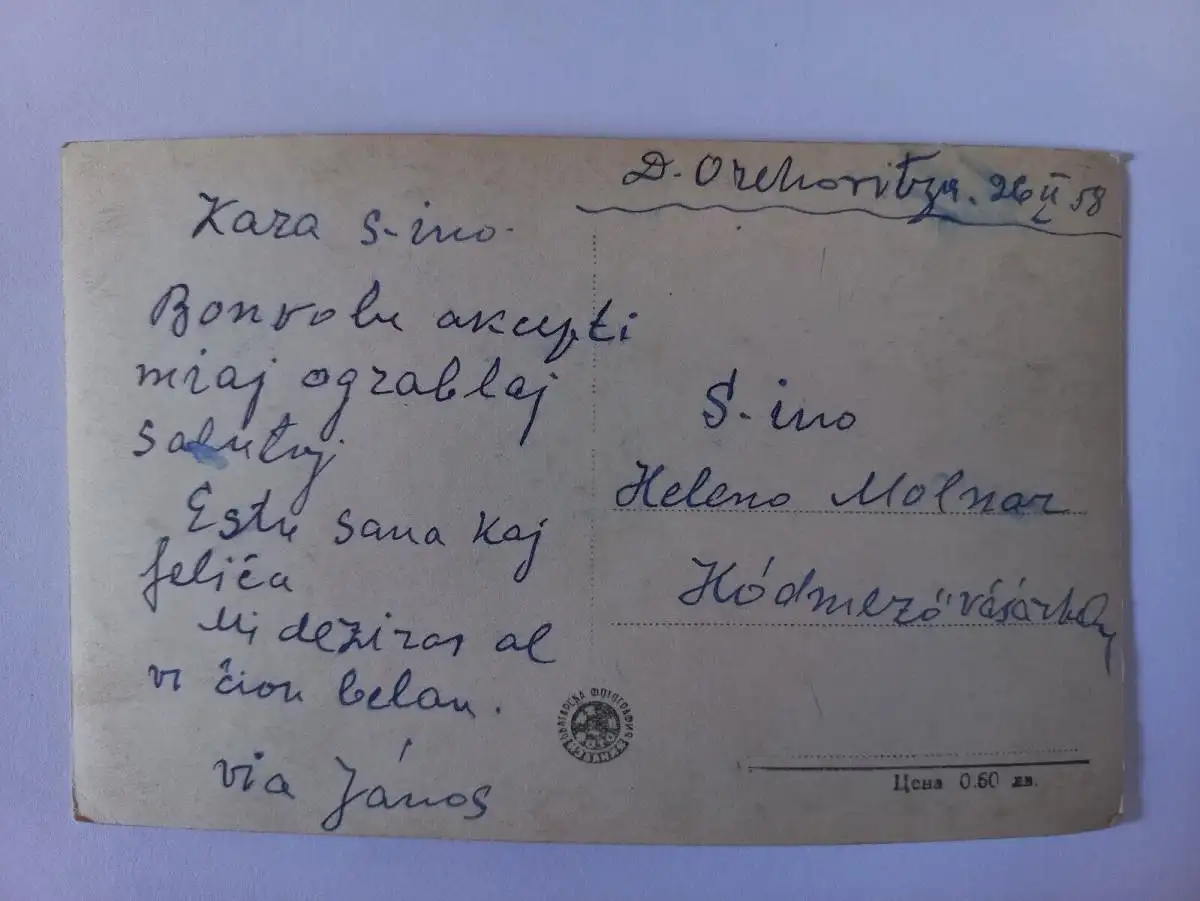 D. Orehovitza. 26 II 58
Kara S-ino.
Bonvolu akcepti
miaj ograblaj
salutoj
Estu sana kaj
feliĉa
Mi deziras al
vi ĉion belan.
via János
S-ino
Heleno Molnar
Hódmezővásárhely
БЪЛГАРСКА ФОТОГРАФИЯ
Цена 0.60 лв.